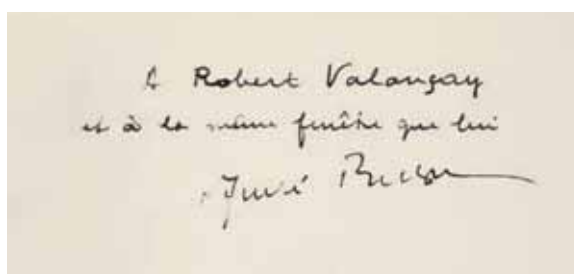 à Robert Valançay
et à la même fenêtre que lui
André Breton